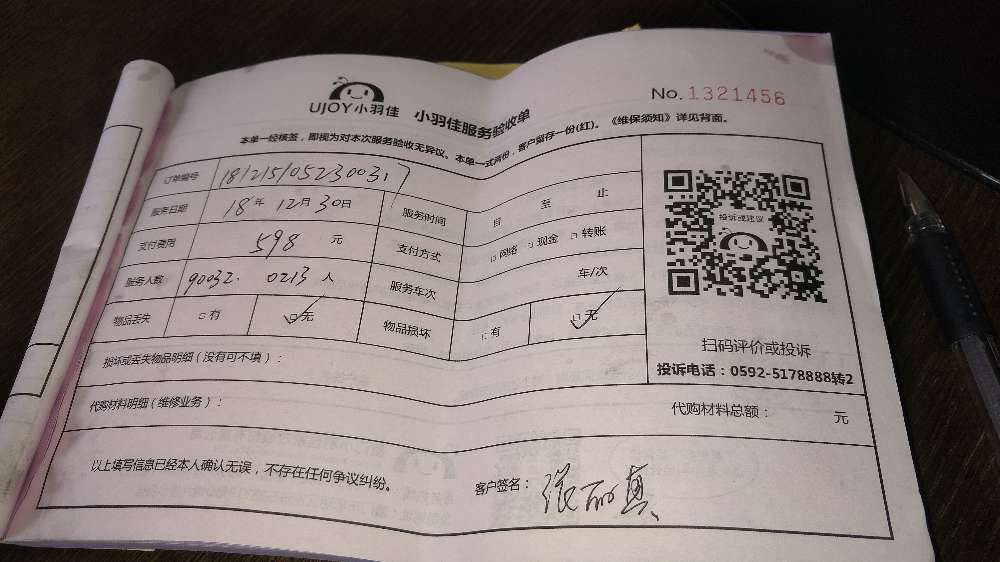 UJOY小羽佳 小羽佳服务验收单 No. 1321456
本单一经核签，即视为对本次服务验收无异议。本单一式两份，客户留存一份(红)。《维保须知》详见背面。
订单编号 1812151052300317
服务日期 18年 12月 30日 服务时间 自 至 止
支付费用 598 元 支付方式 □网络 □现金 □转账
服务人数 90032. 0213 人 服务车次 车/次
物品丢失 □有 □无 物品损坏 □有 □无
投诉或建议
扫码评价或投诉
投诉电话：0592-5178888转2
损坏或丢失物品明细（没有可不填）：
代购材料明细（维修业务）： 代购材料总额： 元
以上填写信息已经本人确认无误，不存在任何争议纠纷。 客户签名：张丽真